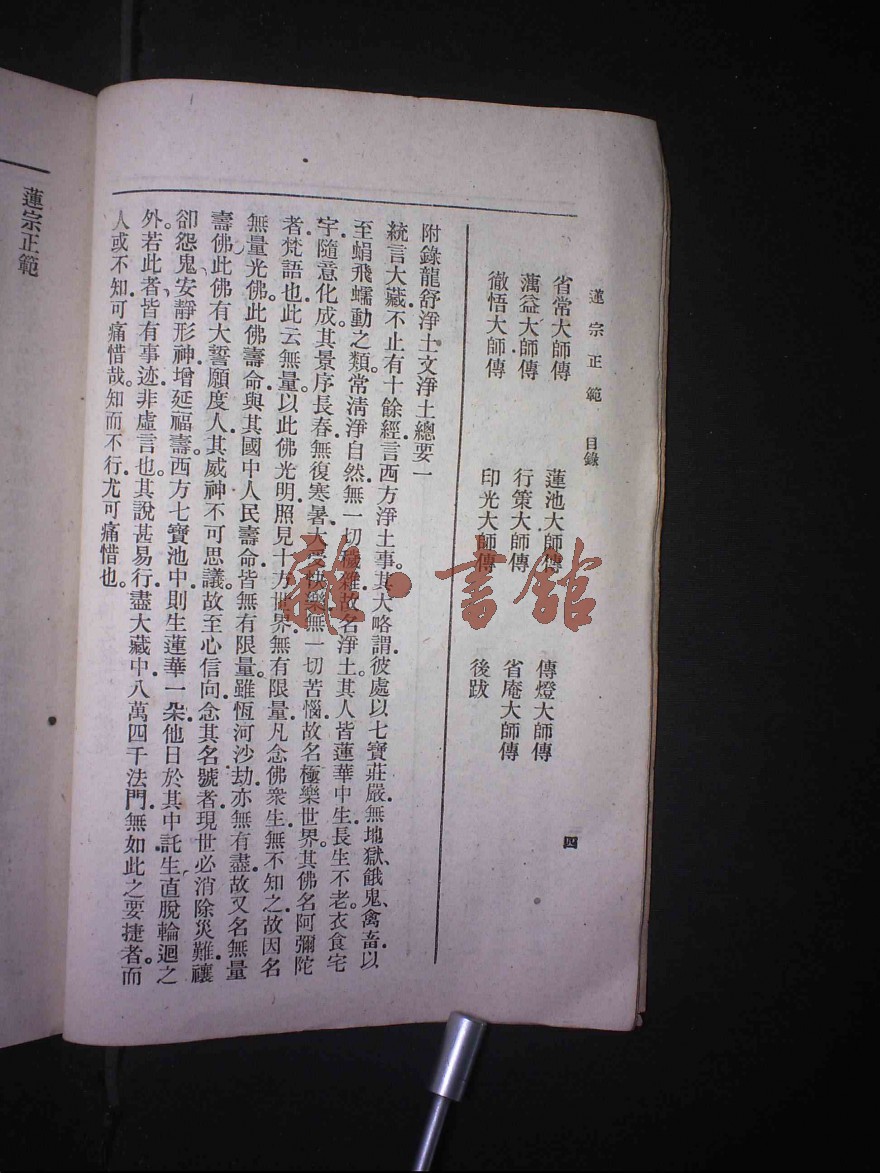 蓮宗正範　目錄
四
省常大師傳　蓮池大師傳　傳燈大師傳
蕅益大師傳　行策大師傳　省庵大師傳
徹悟大師傳　印光大師傳　後跋
附錄龍舒淨土文淨土總要一
統言大藏不止有十餘經言西方淨土事。其大略謂彼處以七寶莊嚴無地獄、餓鬼、禽畜以
至蜎飛蠕動之類常清淨自然無一切穢雜故名淨土其人皆蓮華中生長生不老。衣食宅
宇隨意化成其景序長春無復寒暑大受快樂無一切苦惱故名極樂世界。其佛名阿彌陀
者梵語也此云無量。以此佛光明照見十方世界無有限量凡念佛衆生無不知之故因名
無量光佛此佛壽命與其國中人民壽命皆無有限量。雖恆河沙劫亦無有盡故又名無量
壽佛此佛有大誓願度人其威神不可思議。故至心信向念其名號者現世必消除災難禳
卻怨鬼安靜形神增延福壽西方七寶池中則生蓮華一朵他日於其中託生直脫輪迴之
外。若此者皆有事迹非虛言也。其說甚易行盡大藏中八萬四千法門無如此之要捷者。而
人或不知可痛惜哉。知而不行尤可痛惜也。
蓮宗正範
書館